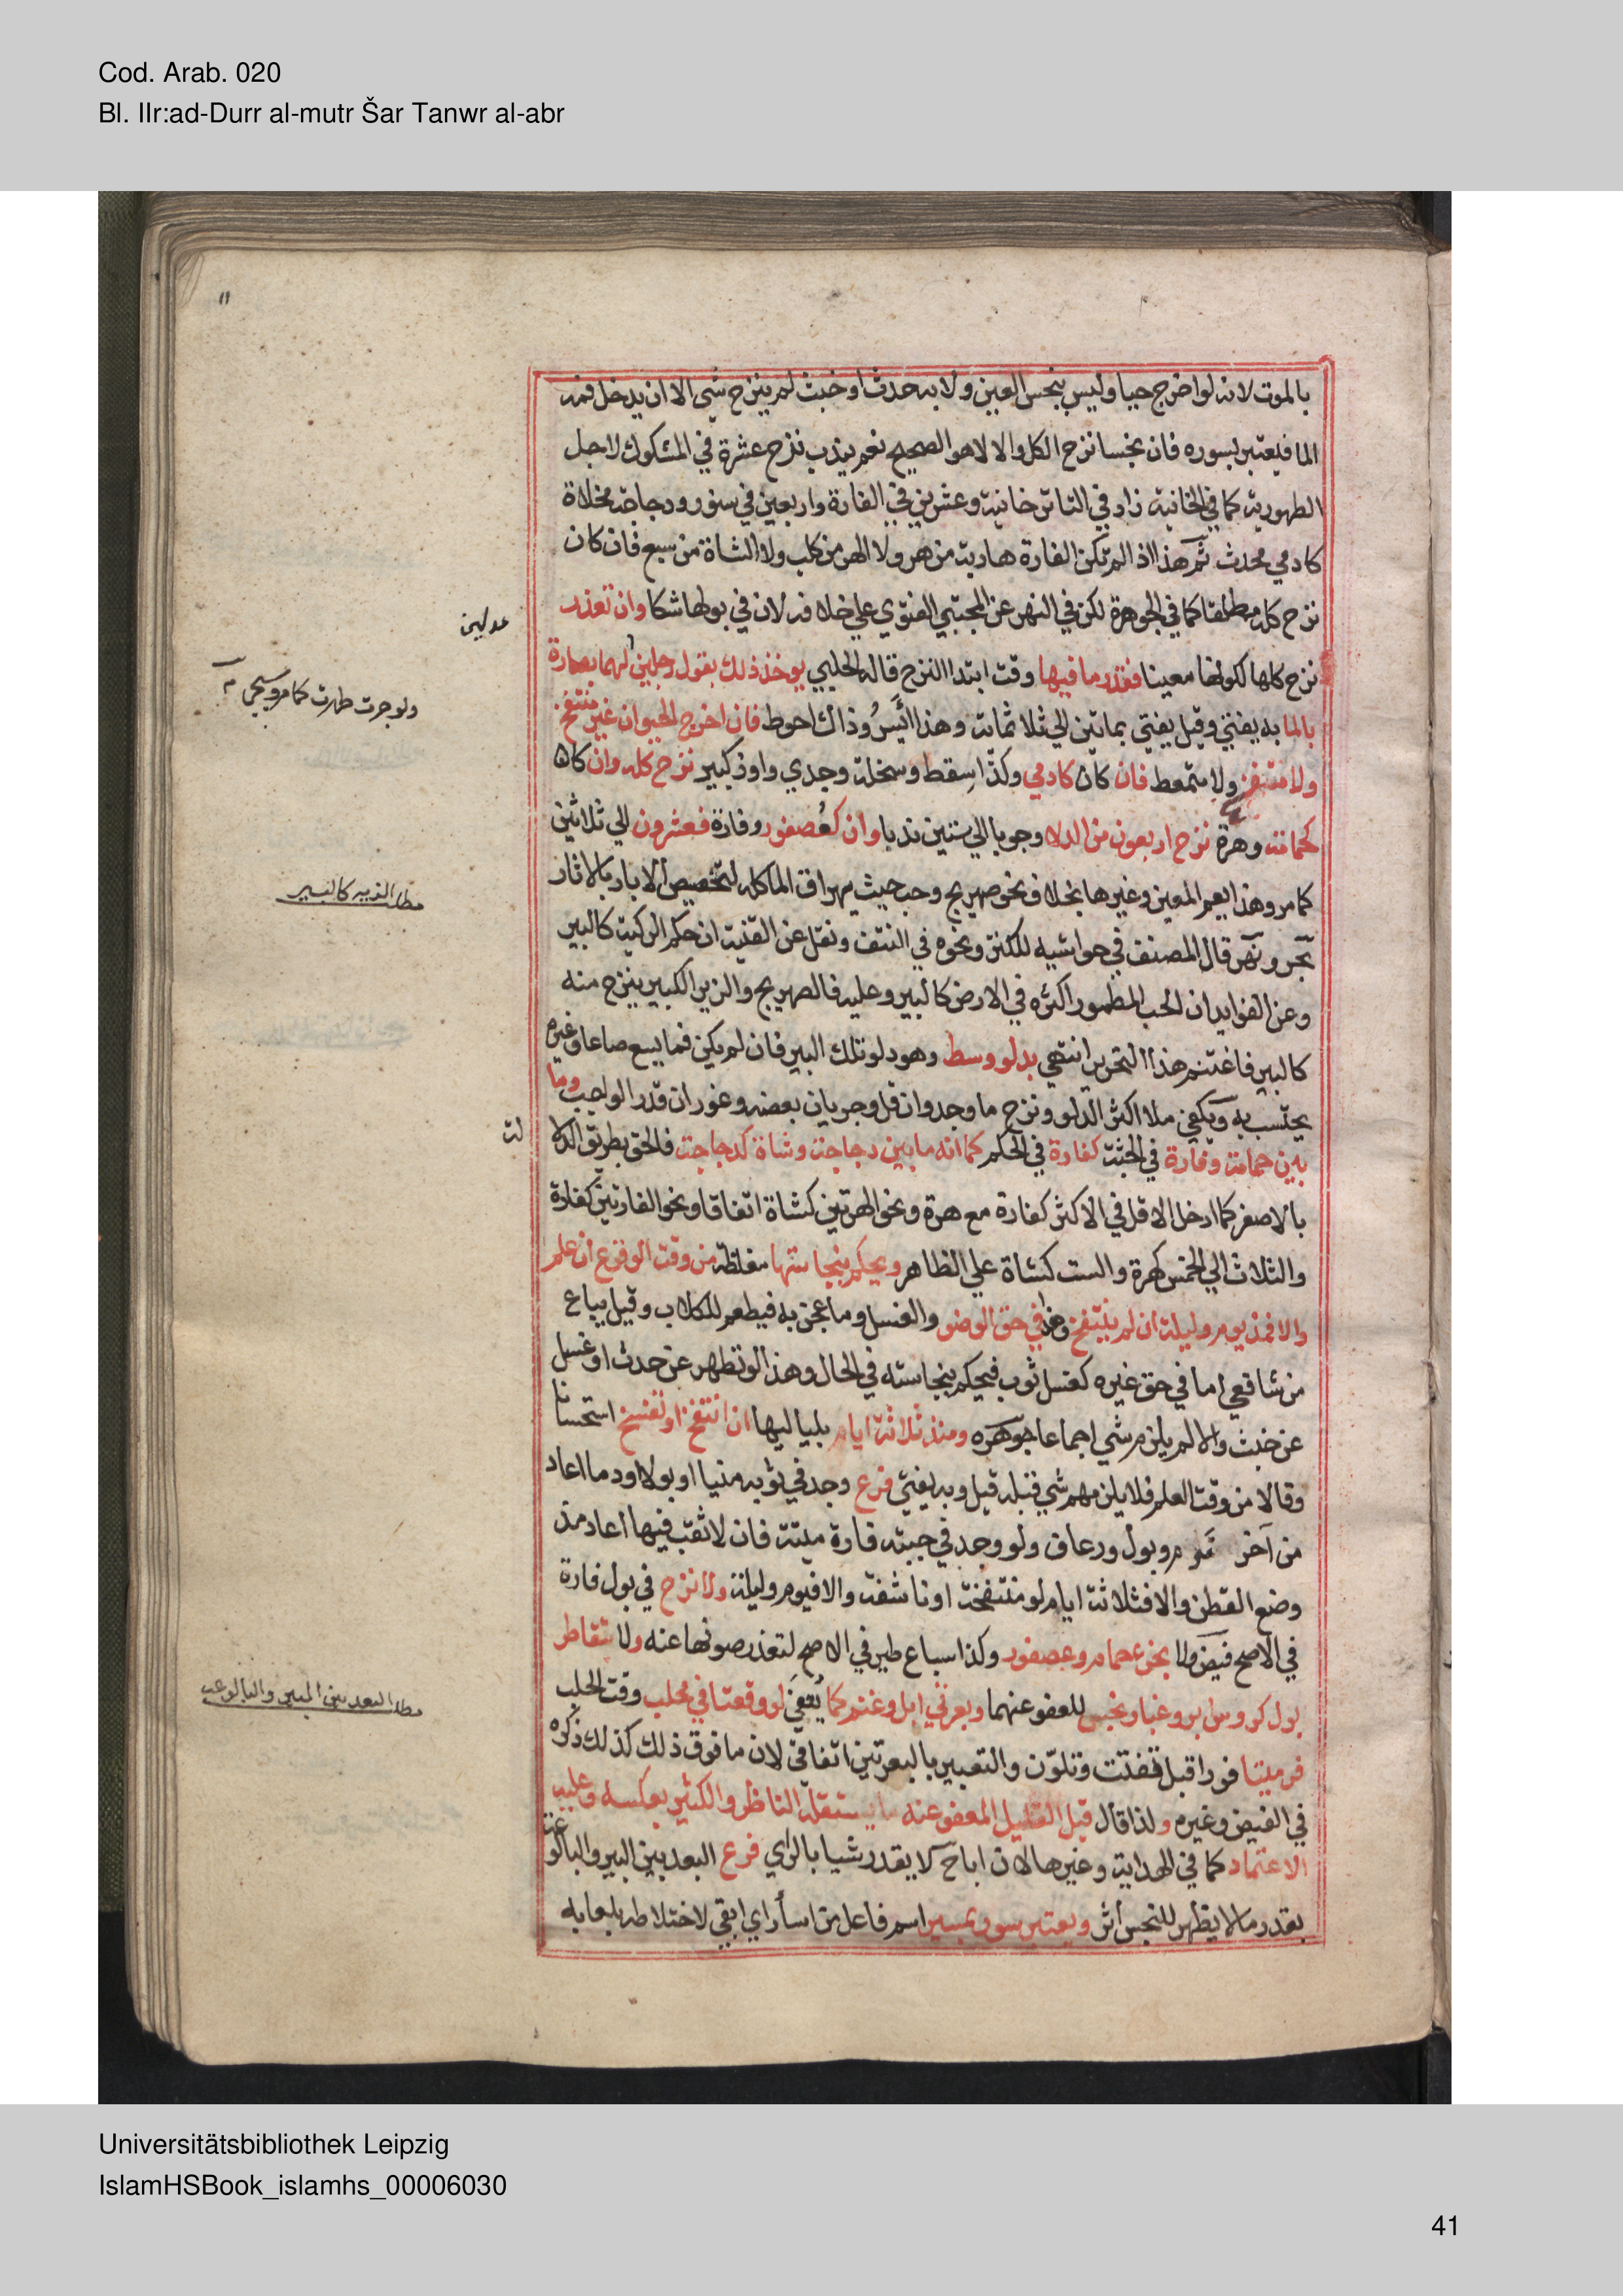 Cod. Arab. 020
Bl. IIr:ad-Durr al-mutr Šar Tanwr al-abr
١١
بالموت لانه لو اخرج حيا وليس بنجس العين ولا به حدث او خبث لم ينزح شي الا ان يدخل فمه
الما فيعتبر بسوره فان نجسا نزح الكل والا لا هو الصحيح نعم يندب نزح عشرة في المشكوك لاجل
الطهورية كما في الخانية زاد في التاتر خانية وعشرين في الفارة واربعين في سنور ودجاجة مخلاة
كادمي محدث ثم هذا اذا لم تكن الفارة هاربة من هر ولا الهر من كلب ولا الشاة من سبع فان كان
نزح كله مطلقا كما في الجوهرة لكن في النهر عن المجتبي الفتوي علي خلافه لان في بولها شكا وان تعذر
عدلين
نزح كلها لكونها معينا فقدر ما فيها وقت ابتدا النزح قاله الحلبي يوخذ ذلك بقول رجلين لهما بصارة
ولو جرت طهرت كما مر وسيجي
بالما به يفتي وقيل يفتي بماتين الي ثلاثمائة وهذا ايسر وذاك احوط فان اخرج الحيوان غير منتفخ
ولا متفسخ ولا متمعط فان كان كادمي وكذا سقط وسخلة وجدي واوز كبير نزح كله وان كان
كحمامة وهرة نزح اربعون من الدلا وجوبا الي ستين ندبا وان كعصفور وفارة فعشرون الي ثلاثين
كما مر وهذا يعم المعين وغيرها بخلاف نحو صهريج وحب حيث يهراق الما كله لتخصيص الابار بالاثار
بحر ونهر قال المصنف في حواشيه للكنز ونحوه في النتف ونقل عن القنية ان حكم الركية كالبير
وعن الفوايد ان الحب المطمور اكثره في الارض كالبير وعليه فالصهريج والزير الكبير ينزح منه
كالبير فاغتنم هذا التحرير انتهي بدلو وسط وهو دلو تلك البير فان لم يكن فما يسع صاعا وغيره
يحتسب به ويكفي ملا اكثر الدلو ونزح ما وجد وان قل وجريان بعضه وغوران قدر الواجب وما
بين حمامة وفارة في الجثة كفارة في الحكم كما انه ما بين دجاجة وشاة كدجاجة فالحق بطريق الدلا
لة
بالاصغر كما ادخل الاقل في الاكثر كفارة مع هرة ونحو الهرتين كشاة اتفاقا ونحو الفارتين كفارة
والثلاث الي الخمس كهرة والست كشاة علي الظاهر ويحكم بنجاستها مغلظة من وقت الوقوع ان علم
والا فمذ يوم وليلة ان لم ينتفخ وهذا في حق الوضو والغسل وما عجن به فيطعم للكلاب وقيل يباع
من شافعي اما في حق غيره كغسل ثوب فيحكم بنجاسته في الحال وهذا لو تطهر عن حدث او غسل
عن خبث والا لم يلزم شي اجماعا جوهره ومنذ ثلاثة ايام بلياليها ان انتفخ او تفسخ استحسانا
وقالا من وقت العلم فلا يلزمهم شي قبله قيل وبه يفتي فرع وجد في ثوبه منيا او بولا او دما اعاد
من آخر نوم وبول ورعاف ولو وجد في جبته فارة ميتة فان لا ثقب فيها اعاد مذ
وضع القطن والا فثلاثة ايام لو منتفخة او ناشفة والا فيوم وليلة ولا نزح في بول فارة
في الاصح فيض ولا بخرء حمام وعصفور وكذا سباع طير في الاصح لتعذر صونها عنه ولا بتقاطر
بول كروس ابر وغبار نجس للعفو عنهما وبعرتي ابل وغنم كما يعفي لو وقعتا في محلب وقت الحلب
فرميتا فورا قبل تفتت وتلون والتعبير بالبعرتين اتفاقي لان ما فوق ذلك كذلك ذكره
في الفيض وغيره ولذا قال قيل القليل المعفو عنه ما يستقله الناظر والكثير بعكسه وعليه
الاعتماد كما في الهداية وغيرها لان ابا ح لا يقدر شيا بالراي فرع البعد بين البير والبالوعة
بقدر ما لا يظهر للنجس اثر ويعتبر سور بمسير اسم فاعل من اسأر اي ابقي لاختلاطه بلعابه
مطلب الزير كالبير
مطلب البعد بين البير والبالوعة
Universitätsbibliothek Leipzig
IslamHSBook_islamhs_00006030
41